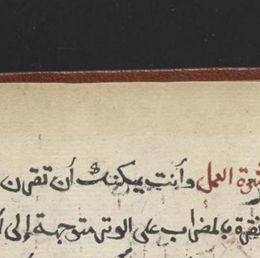 العمل وأنت يمكنك أن تقرن
نقرة بالمضراب على الوتر متوجهة إلى